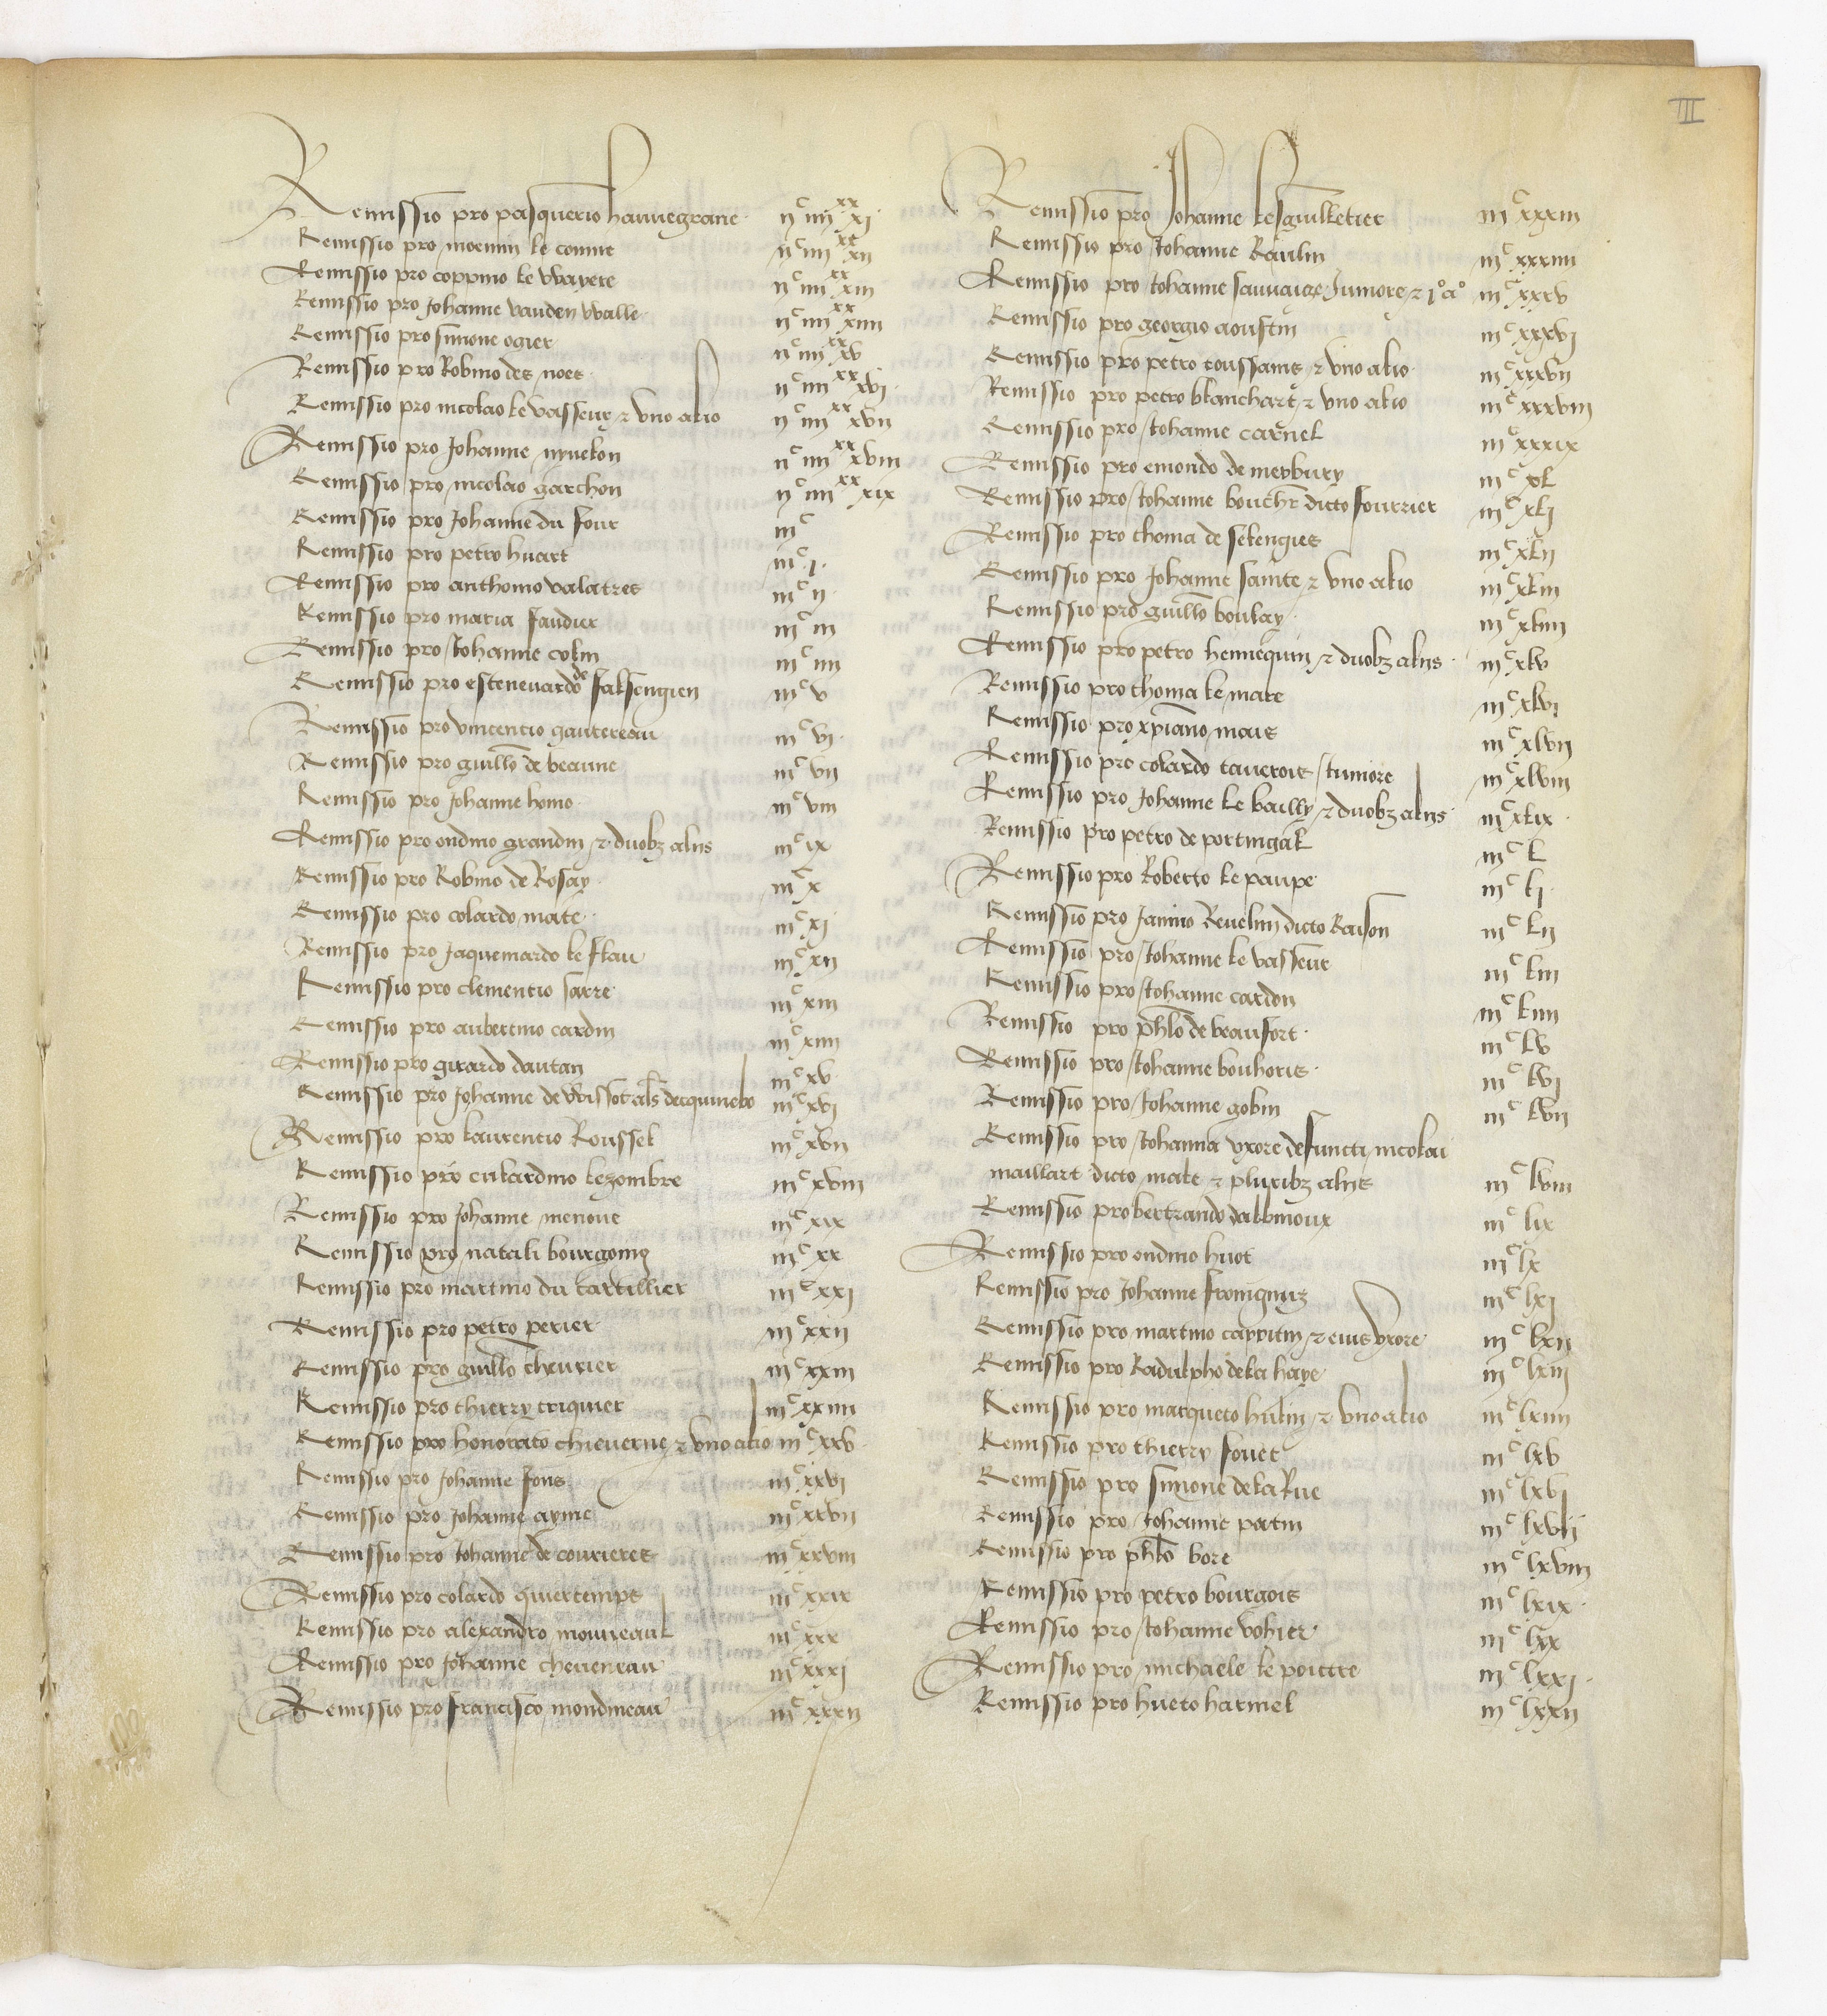 III
Remissio pro pasquerio hannegrane
ii^c iiii^xx xi
Remissio pro moenin le conne
ii^c iiii^xx xii
Remissio pro coppino le Wayere
ii^c iiii^xx xiii
Remissio pro Johanne vanden Walle
ii^c iiii^xx xiiii
Remissio pro simone ogier
ii^c iiii^xx xv
Remissio pro Robino des noes
ii^c iiii^xx xvi
Remissio pro nicolao le vasseur & uno alio
ii^c iiii^xx xvii
Remissio pro Johanne nyvelon
ii^c iiii^xx xviii
Remissio pro nicolao garchon
ii^c iiii^xx xix
Remissio pro Johanne du four
iii^c
Remissio pro petro huart
iii^c i
Remissio pro anthonio valatres
iii^c ii
Remissio pro maria faudier
iii^c iii
Remissio pro Johanne colin
iii^c iiii
Remissio pro estenevardo de falsengien
iii^c v
Remissio pro vincentio gautereau
iii^c vi
Remissio pro guillo de beaune
iii^c vii
Remissio pro Johanne homo
iii^c viii
Remissio pro oudino grandin & duobz aliis
iii^c ix
Remissio pro Robino de Rosay
iii^c x
Remissio pro colardo mate
iii^c xi
Remissio pro Jaquemardo le flau
iii^c xii
Remissio pro clementio sarre
iii^c xiii
Remissio pro aubertino cardin
iii^c xiiii
Remissio pro girardo dautan
iii^c xv
Remissio pro Johanne de Wissot als decquinebo
iii^c xvi
Remissio pro laurentio Roussel
iii^c xvii
Remissio pro enlardino lezombre
iii^c xviii
Remissio pro Johanne menone
iii^c xix
Remissio pro natali bourgoing
iii^c xx
Remissio pro martino du tartillier
iii^c xxi
Remissio pro petro perier
iii^c xxii
Remissio pro guillo cheurier
iii^c xxiii
Remissio pro thierry triquier
iii^c xxiiii
Remissio pro honorato chieverue & uno alio
iii^c xxv
Remissio pro Johanne Jous
iii^c xxvi
Remissio pro Johanne ayme
iii^c xxvii
Remissio pro Johanne de courieres
iii^c xxviii
Remissio pro colardo quiertemps
iii^c xxix
Remissio pro alexandro mouneau
iii^c xxx
Remissio pro Johanne chevereau
iii^c xxxi
Remissio pro francisco mondineau
iii^c xxxii
Remissio pro Johanne lesguilletier
iii^c xxxiii
Remissio pro Johanne Raulin
iii^c xxxiiii
Remissio pro Johanne sauvaige Juniore & i° a°
iii^c xxxv
Remissio pro georgio aoustin
iii^c xxxvi
Remissio pro petro toussains & uno alio
iii^c xxxvii
Remissio pro petro blanchart & uno alio
iii^c xxxviii
Remissio pro Johanne carnel
iii^c xxxix
Remissio pro emondo de merbury
iii^c xl
Remissio pro Johanne boucher dicto fourrier
iii^c xli
Remissio pro thoma de selengies
iii^c xlii
Remissio pro Johanne sainte & uno alio
iii^c xliii
Remissio pro guillo boulay
iii^c xliiii
Remissio pro petro hennequin & duobz aliis
iii^c xlv
Remissio pro thoma le mare
iii^c xlvi
Remissio pro xpiano mais
iii^c xlvii
Remissio pro colardo tauerois Juniore
iii^c xlviii
Remissio pro Johanne le bailly & duobz aliis
iii^c xlix
Remissio pro petro de portingal
iii^c l
Remissio pro Roberto le paupe
iii^c li
Remissio pro Janino Revelin dicto Raison
iii^c lii
Remissio pro Johanne le vasseur
iii^c liii
Remissio pro Johanne cardon
iii^c liiii
Remissio pro phlo de beaufort
iii^c lv
Remissio pro Johanne bouhoris
iii^c lvi
Remissio pro Johanne gobin
iii^c lvii
Remissio pro Johanna uxore defuncti nicolai
maillart dicto male & pluribz aliis
iii^c lviii
Remissio pro bertrando dalbinoux
iii^c lix
Remissio pro oudino huot
iii^c lx
Remissio pro Johanne fronignuz
iii^c lxi
Remissio pro martino carritin & eius uxore
iii^c lxii
Remissio pro Radulpho de la haye
iii^c lxiii
Remissio pro marqueto hulin & uno alio
iii^c lxiiii
Remissio pro thierry fouet
iii^c lxv
Remissio pro simone de la Rue
iii^c lxvi
Remissio pro Johanne patin
iii^c lxvii
Remissio pro phlo bore
iii^c lxviii
Remissio pro petro bourgois
iii^c lxix
Remissio pro Johanne vohier
iii^c lxx
Remissio pro michaele le poictre
iii^c lxxi
Remissio pro hueto harmel
iii^c lxxii